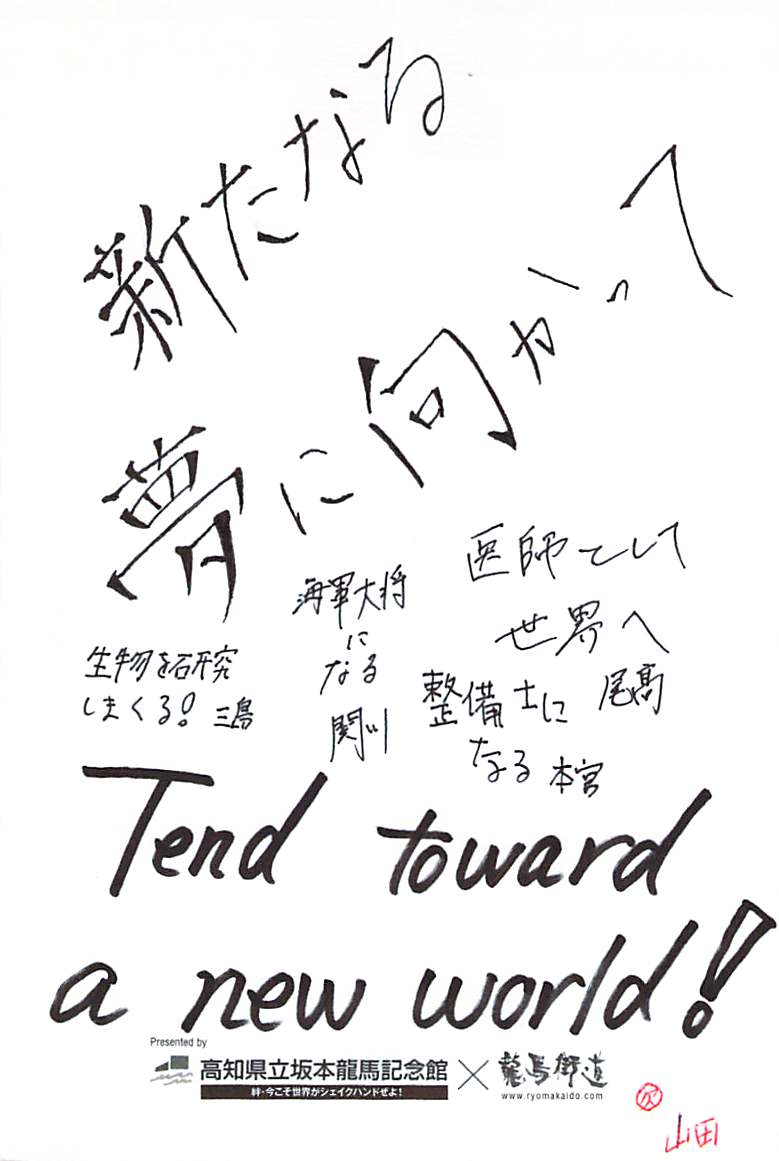 新たなる
夢に向かって
医師として
世界へ
尾髙
海軍大将
に
なる
関川
生物を研究
しまくる! 三島
整備士に
なる 本宮
Tend toward
a new world!
Presented by
高知県立坂本龍馬記念館 × 龍馬街道
絆・今こそ世界がシェイクハンドぜよ!
www.ryomakaido.com
山田